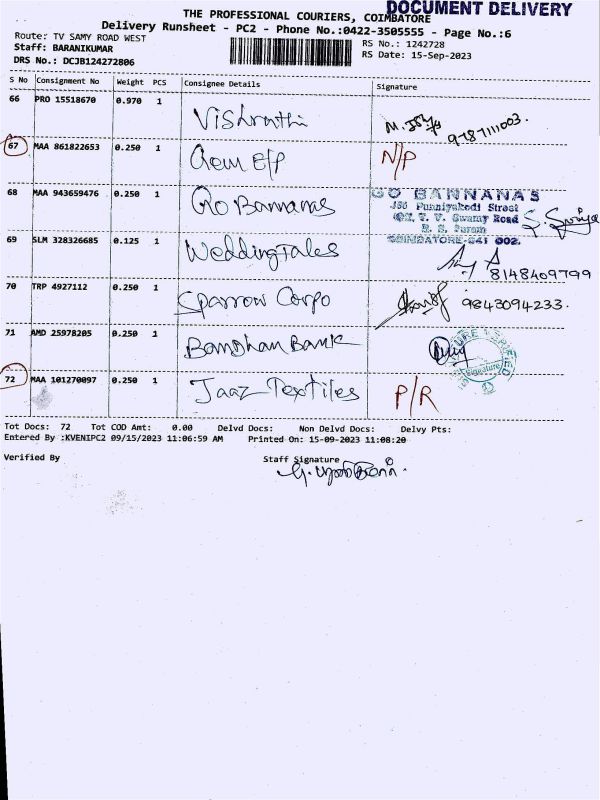 DOCUMENT DELIVERY
THE PROFESSIONAL COURIERS, COIMBATORE
Delivery Runsheet - PC2 - Phone No.:0422-3505555 - Page No.:6
Route: TV SAMY ROAD WEST
RS No.: 1242728
Staff: BARANIKUMAR
RS Date: 15-Sep-2023
DRS No.: DCJB124272806
S No Consignment No Weight PCS Consignee Details Signature
66 PRO 15518670 0.970 1 Vishranthi 9787111003.
67 MAA 861822653 0.250 1 Gem E/P N/P
68 MAA 943659476 0.250 1 Go Bannanas
GO BANNANAS
Punniyakodi Street
T. V. Swamy Road
R. S. Puram
COIMBATORE-641 002.
69 SLM 328326685 0.125 1 Wedding Tales 8148409799
70 TRP 4927112 0.250 1 Sparrow Corpo 9843094233.
71 AMD 25978205 0.250 1 Bandhan Bank
Signature
72 MAA 101270097 0.250 1 Jaaz Textiles P/R
Tot Docs: 72 Tot COD Amt: 0.00 Delvd Docs: Non Delvd Docs: Delvy Pts:
Entered By :KVENIPC2 09/15/2023 11:06:59 AM Printed On: 15-09-2023 11:08:20
Verified By Staff Signature